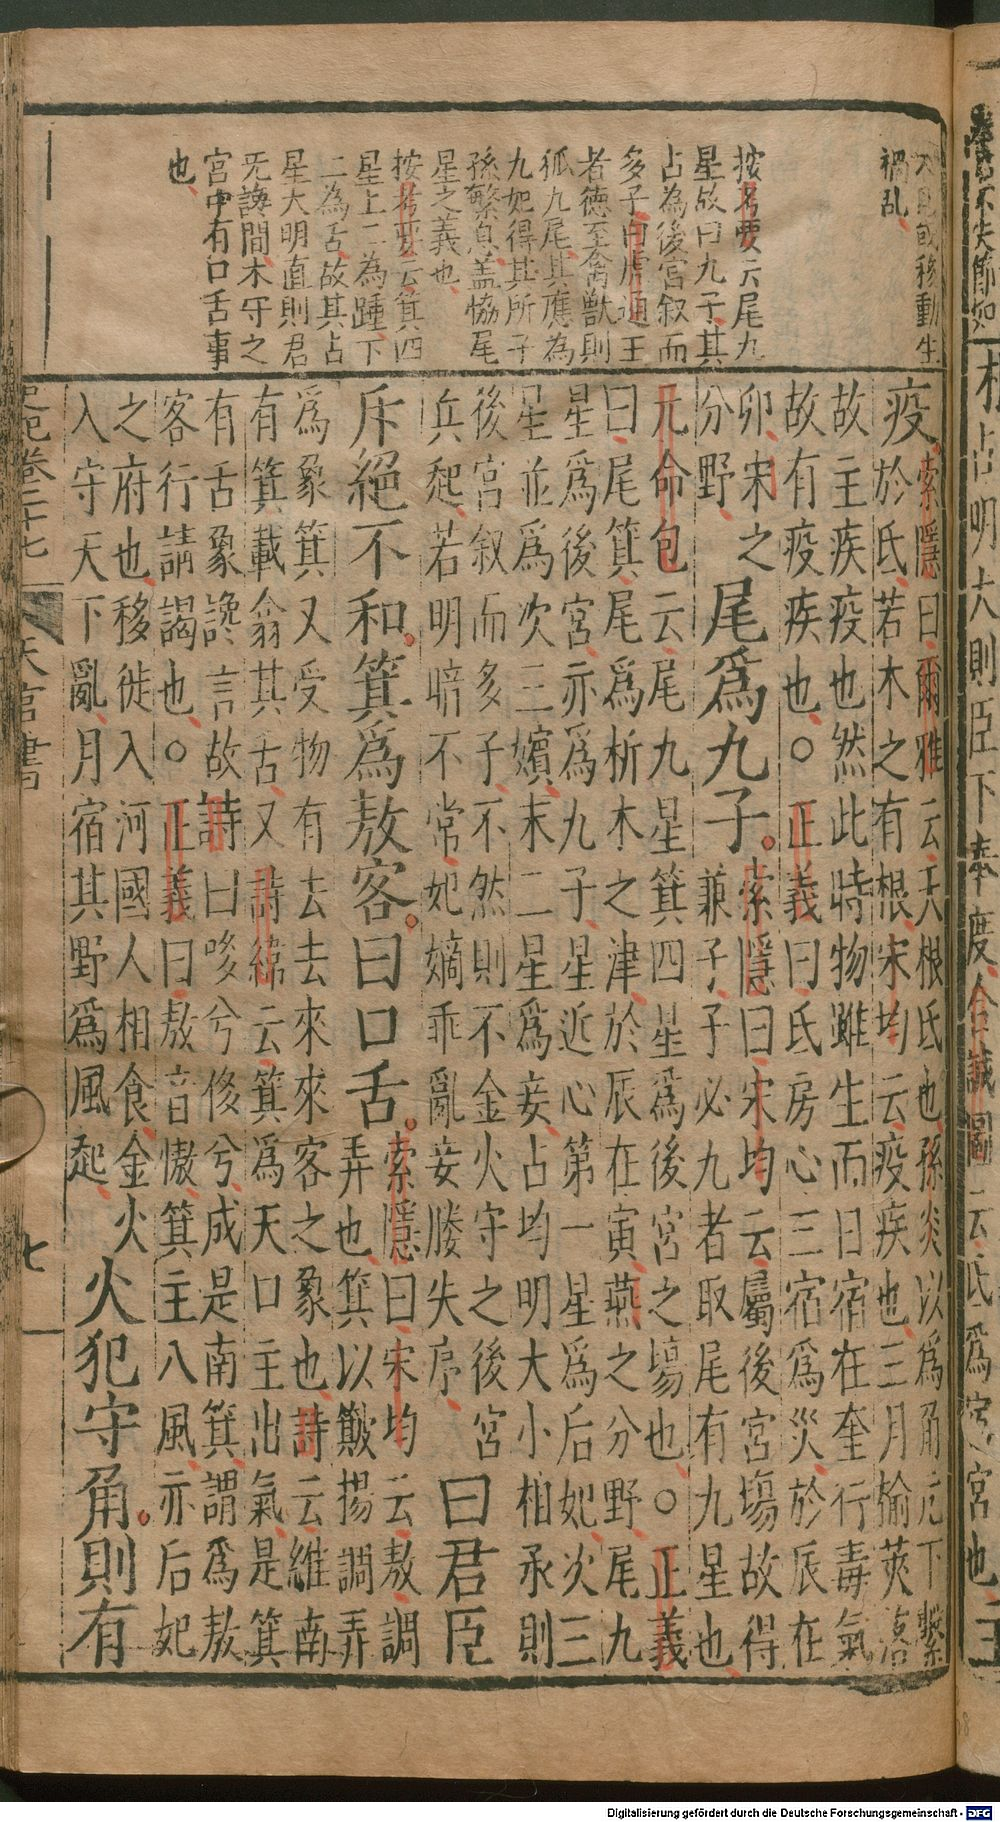 不見或移動生
禍乱
按考要云尾九
星故曰九子其
占為後宮叙而
多子白虎通王
者德至禽獸則
狐九尾其應為
九妃得其所子
孫繁息盖恊尾
星之義也
按考要云箕四
星上二為踵下
二為舌故其占
星大明直則君
无讒間木守之
宮中有口舌事
也
疫索隱曰爾雅云天根氐也孫炎以爲角亢下繫
於氐若木之有根宋均云疫疾也三月榆莢落
故主疾疫也然此時物雖生而日宿在奎行毒氣
故有疫疾也○正義曰氐房心三宿爲災於辰在
卯宋之
分野
尾爲九子
索隱曰宋均云屬後宮場故得
兼子子必九者取尾有九星也
元命包云尾九星箕四星爲後宮之場也○正義
曰尾箕尾爲析木之津於辰在寅燕之分野尾九
星爲後宮亦爲九子星近心第一星爲后妃次三
星並爲次三嬪末二星爲妾占均明大小相承則
後宮叙而多子不然則不金火守之後宮
兵起若明暗不常妃嫡乖亂妾媵失序
曰君臣
斥絕不和箕爲敖客曰口舌
索隱曰宋均云敖調
弄也箕以簸揚調弄
爲象箕又受物有去去來來客之象也詩云維南
有箕載翕其舌又詩緯云箕爲天口主出氣是箕
有舌象讒言故詩曰哆兮侈兮成是南箕謂爲敖
客行請謁也○正義曰敖音慠箕主八風亦后妃
之府也移徙入河國人相食金火
入守天下亂月宿其野爲風起
火犯守角則有
卷二十七
天官書
七
Digitalisierung gefördert durch die Deutsche Forschungsgemeinschaft - DFG